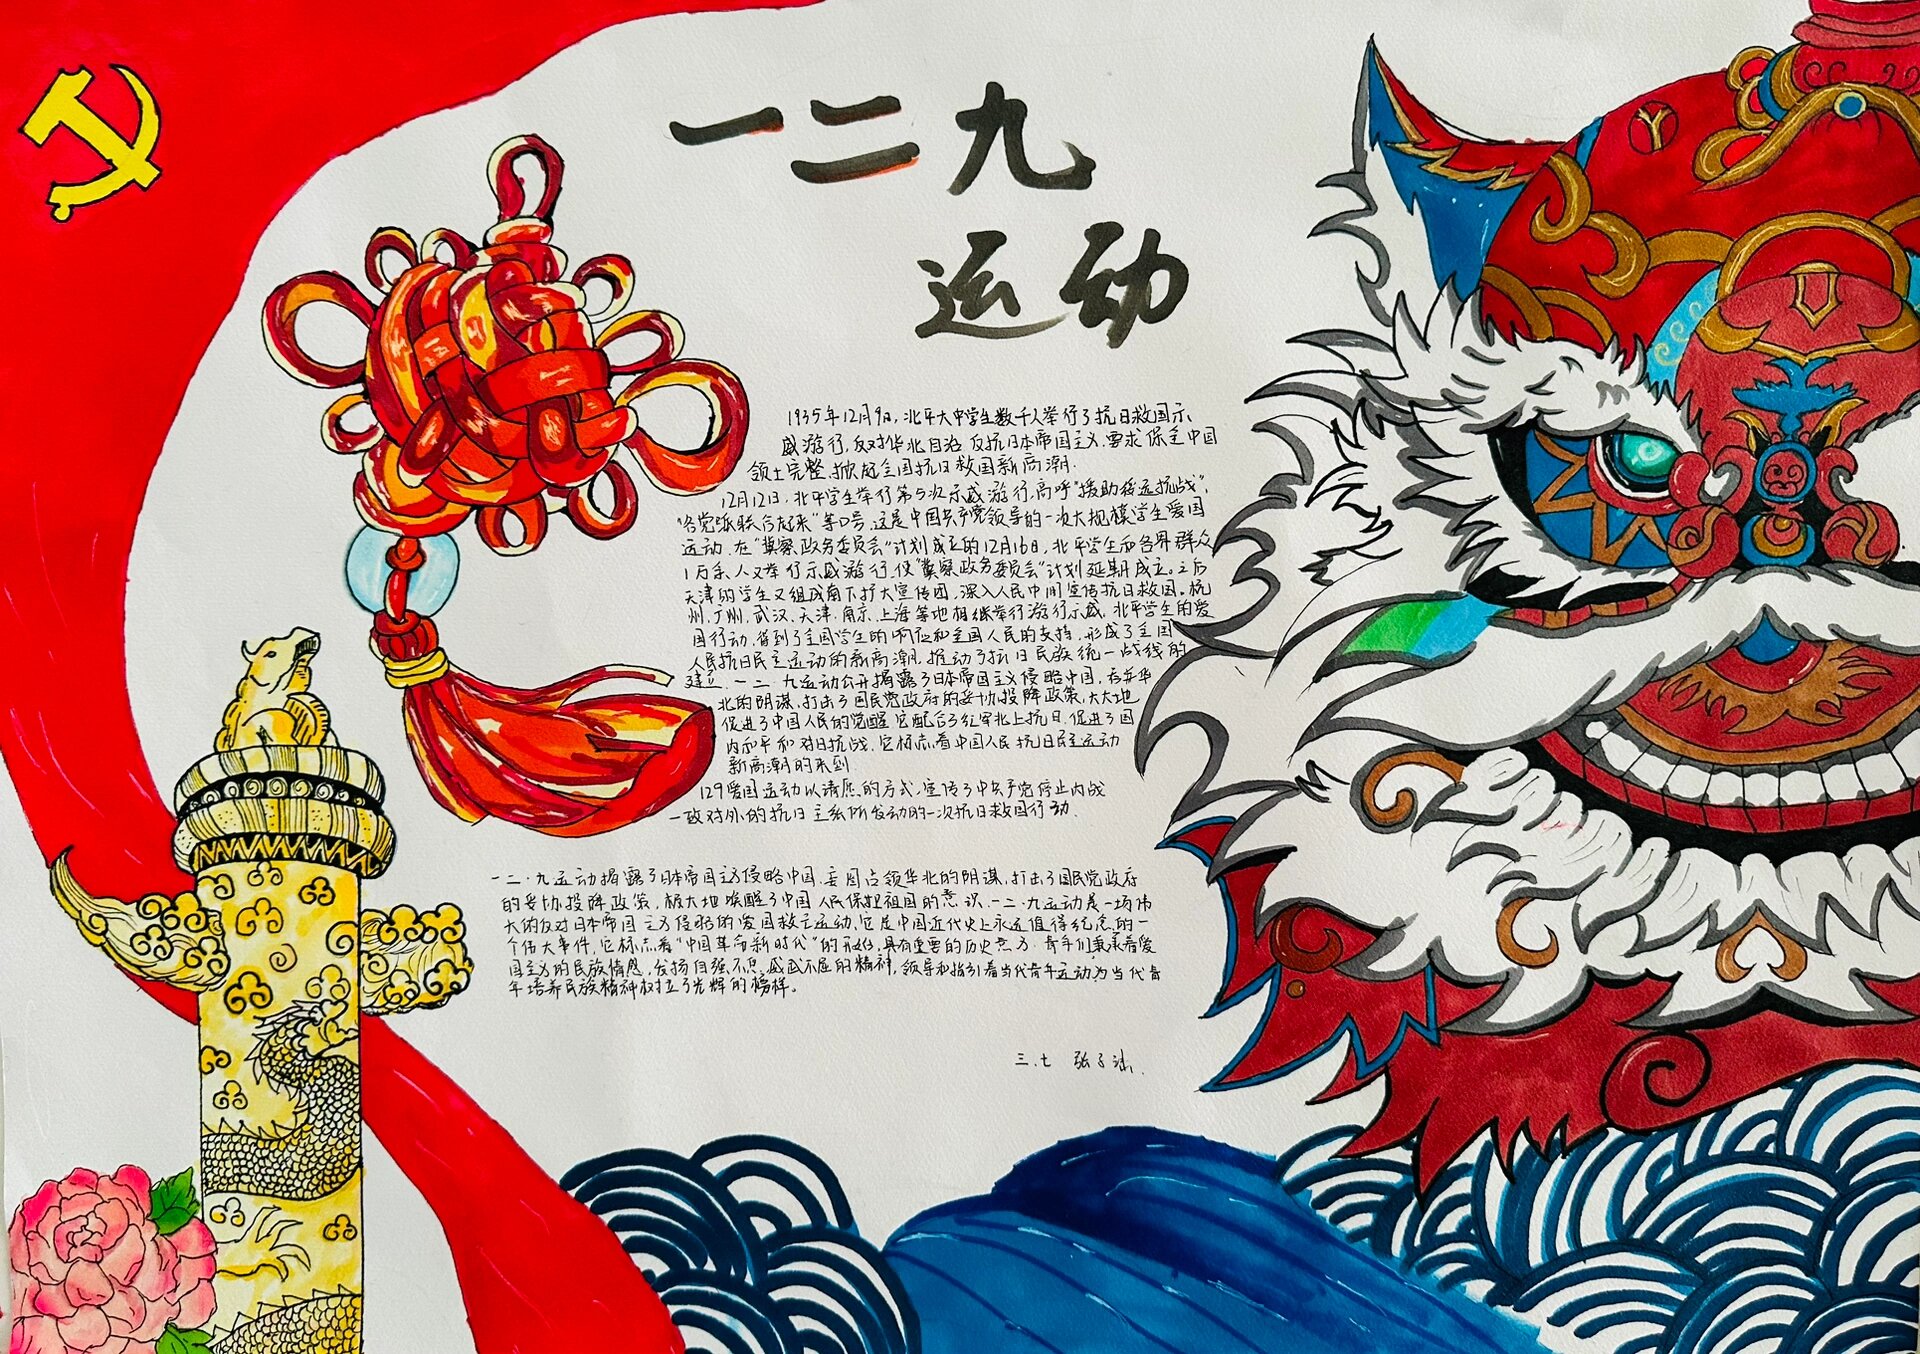 一二九
运动
1935年12月9日,北平大中学生数千人举行了抗日救国示
威游行,反对华北自治,反抗日本帝国主义,要求保全中国
领土完整,掀起全国抗日救国新高潮.
12月12日,北平学生举行第5次示威游行,高呼"援助绥远抗战",
"各党派联合起来"等口号.这是中国共产党领导的一次大规模学生爱国
运动.在"冀察政务委员会"计划成立的12月16日,北平学生和各界群众
1万余人又举行示威游行,使"冀察政务委员会"计划延期成立。之后
天津的学生又组成南下扩大宣传团,深入人民中间宣传抗日救国.杭
州.广州.武汉.天津.南京.上海等地相继举行游行示威.北平学生的爱
国行动,得到了全国学生的响应和全国人民的支持,形成了全国
人民抗日民主运动的新高潮,推动了抗日民族统一战线的
建立.一二.九运动公开揭露了日本帝国主义侵略中国,吞并华
北的阴谋,打击了国民党政府的妥协投降政策,大大地
促进了中国人民的觉醒.它配合了红军北上抗日,促进了国
内和平和对日抗战.它标志着中国人民抗日民主运动
新高潮的来到.
129爱国运动以请愿的方式,宣传了中共产党停止内战
一致对外的抗日主张所发动的一次抗日救国行动.
一二·九运动揭露了日本帝国主义侵略中国,妄图占领华北的阴谋,打击了国民党政府
的妥协投降政策,极大地唤醒了中国人民保护祖国的意识.一二·九运动是一场伟
大的反对日本帝国主义侵略的爱国救亡运动,它是中国近代史上永远值得纪念的一
个伟大事件,它标志着"中国革命新时代"的到来,具有重要的历史意义.青年们秉承着爱
国主义的民族情感,发扬自强不息,威武不屈的精神,领导和指引着当代青年运动,为当代青
年培养民族精神树立了光辉的榜样。
三.七 张子